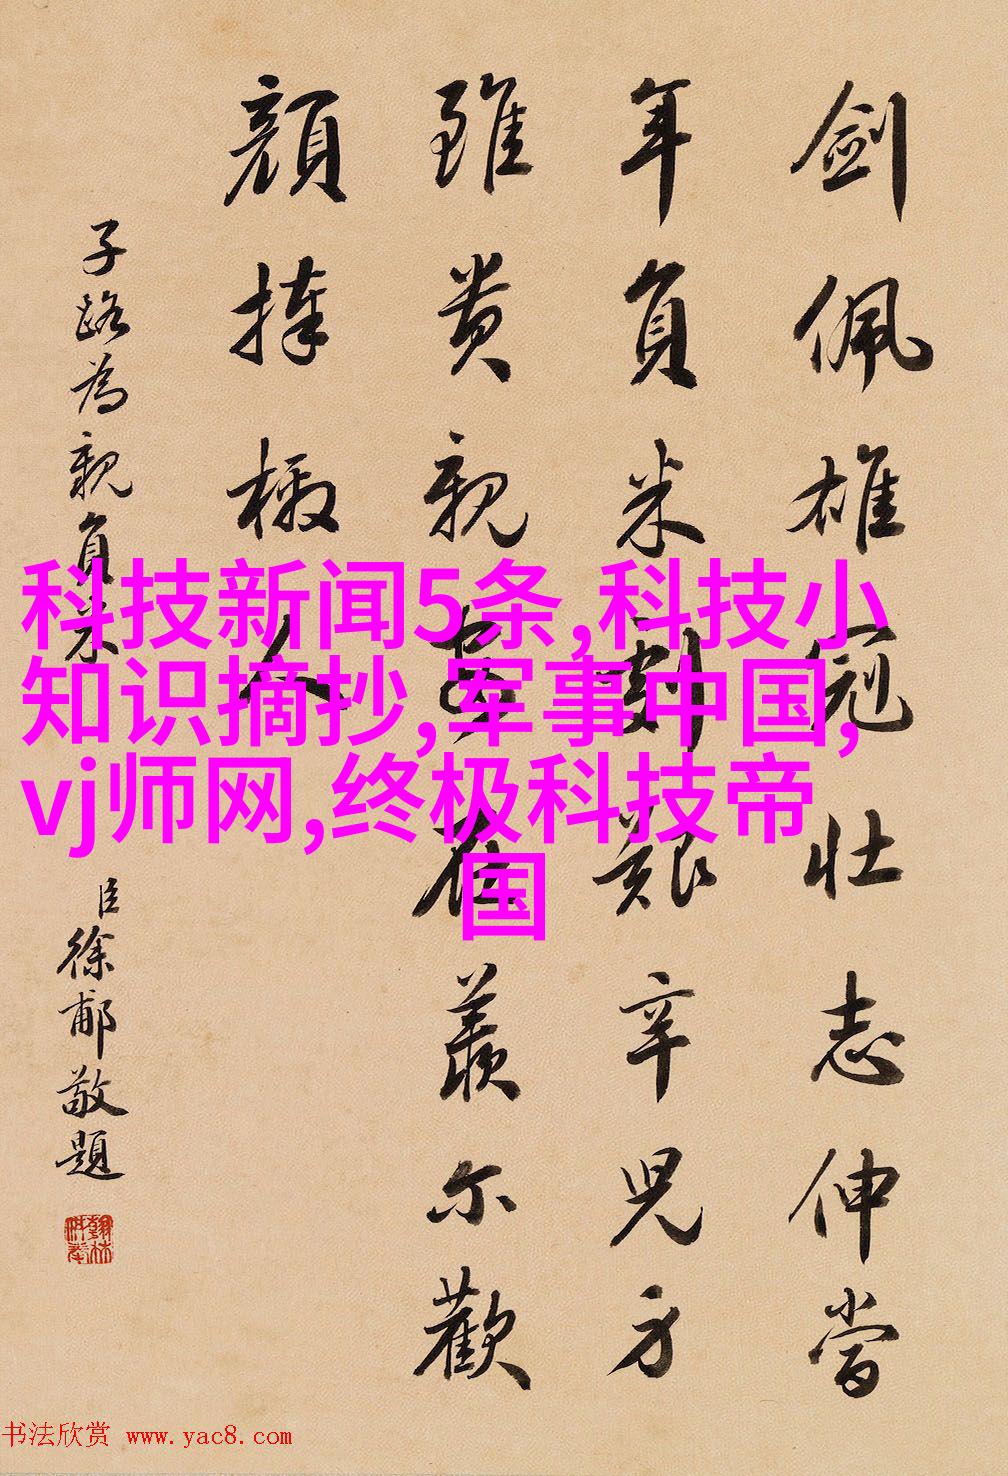 劍佩雄冠壮志伸當
年負米劇艱辛兒方
雖貴親安在羨尔歡
顏捧檄人
子路為親負米
臣徐郙敬題
科技新闻5条,科技小
知识摘抄,军事中国,
vj师网,终极科技帝
国
书法欣赏 www.yac8.com